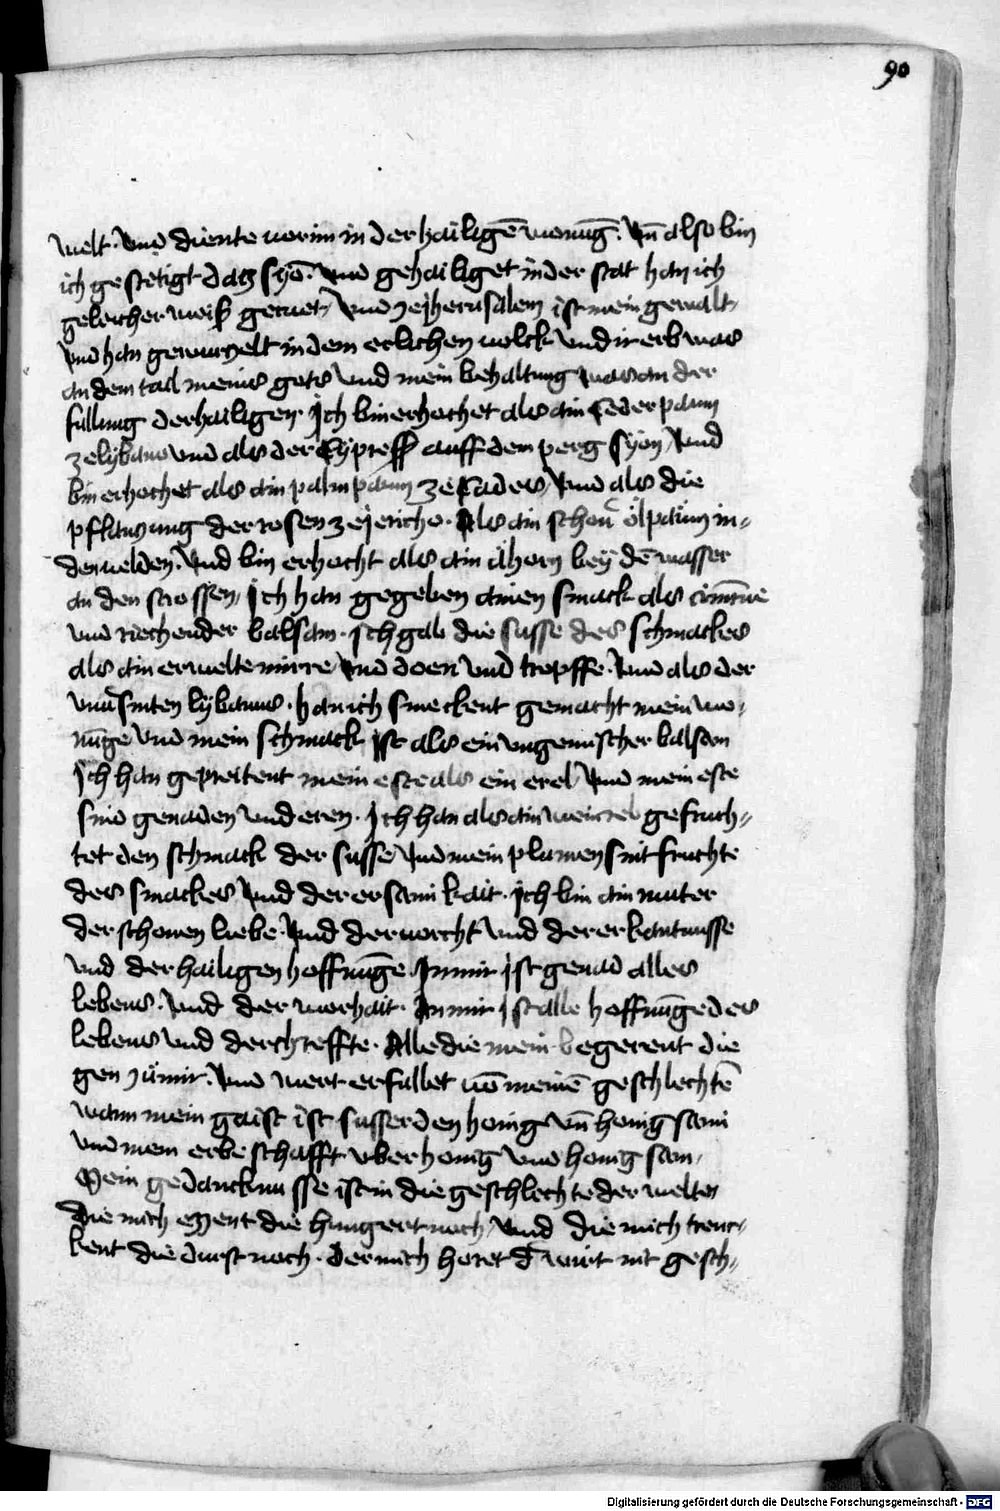 90
welt · Vnd diente vor im in der hailigē wonūg · Vn̄ also bin
ich gestetigt daz syō · vnd gehailiget in der stat han ich
geleicher weiß geruet / vnd zejherusalem ist mein gewalt /
vnd han gewurzelt in dem erlichen volck vnd ir erb was
an dem tail meins gots vnd mein behaltung was an der
fullung der hailigen · Ich bin erhochet als ain Ceder paum
zelybano vnd als der Cypreß auff dem perg syon / vnd
bin erhochet als ain palm paum ze Cades / vnd als die
pflanzung der rosen ze jericho · Als ain schon̄ ölpaum in=
den velden · Vnd bin erhocht als ain ahorn bey dē wasser
an den strossen / Ich han gegeben ainen smack als
vnd riechender balsam · ich gab die susse des schmackes
als ain erwelte mirre vnd vnd tropffe · vnd als der
lybanus · han ich smeckent gemacht mein wo=
nūge vnd mein schmack ist als ein vngemischer balsam
Ich han gepreitent mein este als ein vnd mein este
sind genaden vnd eren · Ich han als ain weinreb gefruch=
tet den schmack der susse vnd mein plumen sint fruchte
des smackes vnd der ersami kait · ich bin ain muter
der schonen liebe · vnd der vorcht vnd der erkantnusse
vnd der hailigen hoffnūge · In mir ist genad alles
lebens · vnd der worhait · In mir ist alle hoffnūge des
lebens vnd der · Alle die mein begerent die
gen zu mir · vnd wert erfullet vō meinē geschlechtē
wann mein gaist ist susser den honig vn̄ honigsam
vnd mein erbeschafft vber honig vnd honig sam /
Mein gedancknusse ist in die geschlechte der welte
die mich ezzent die hungert noch / vnd die mich trinc=
kent die durst noch · der mich horet d wirt nit gesch=
Digitalisierung gefördert durch die Deutsche Forschungsgemeinschaft - DFG